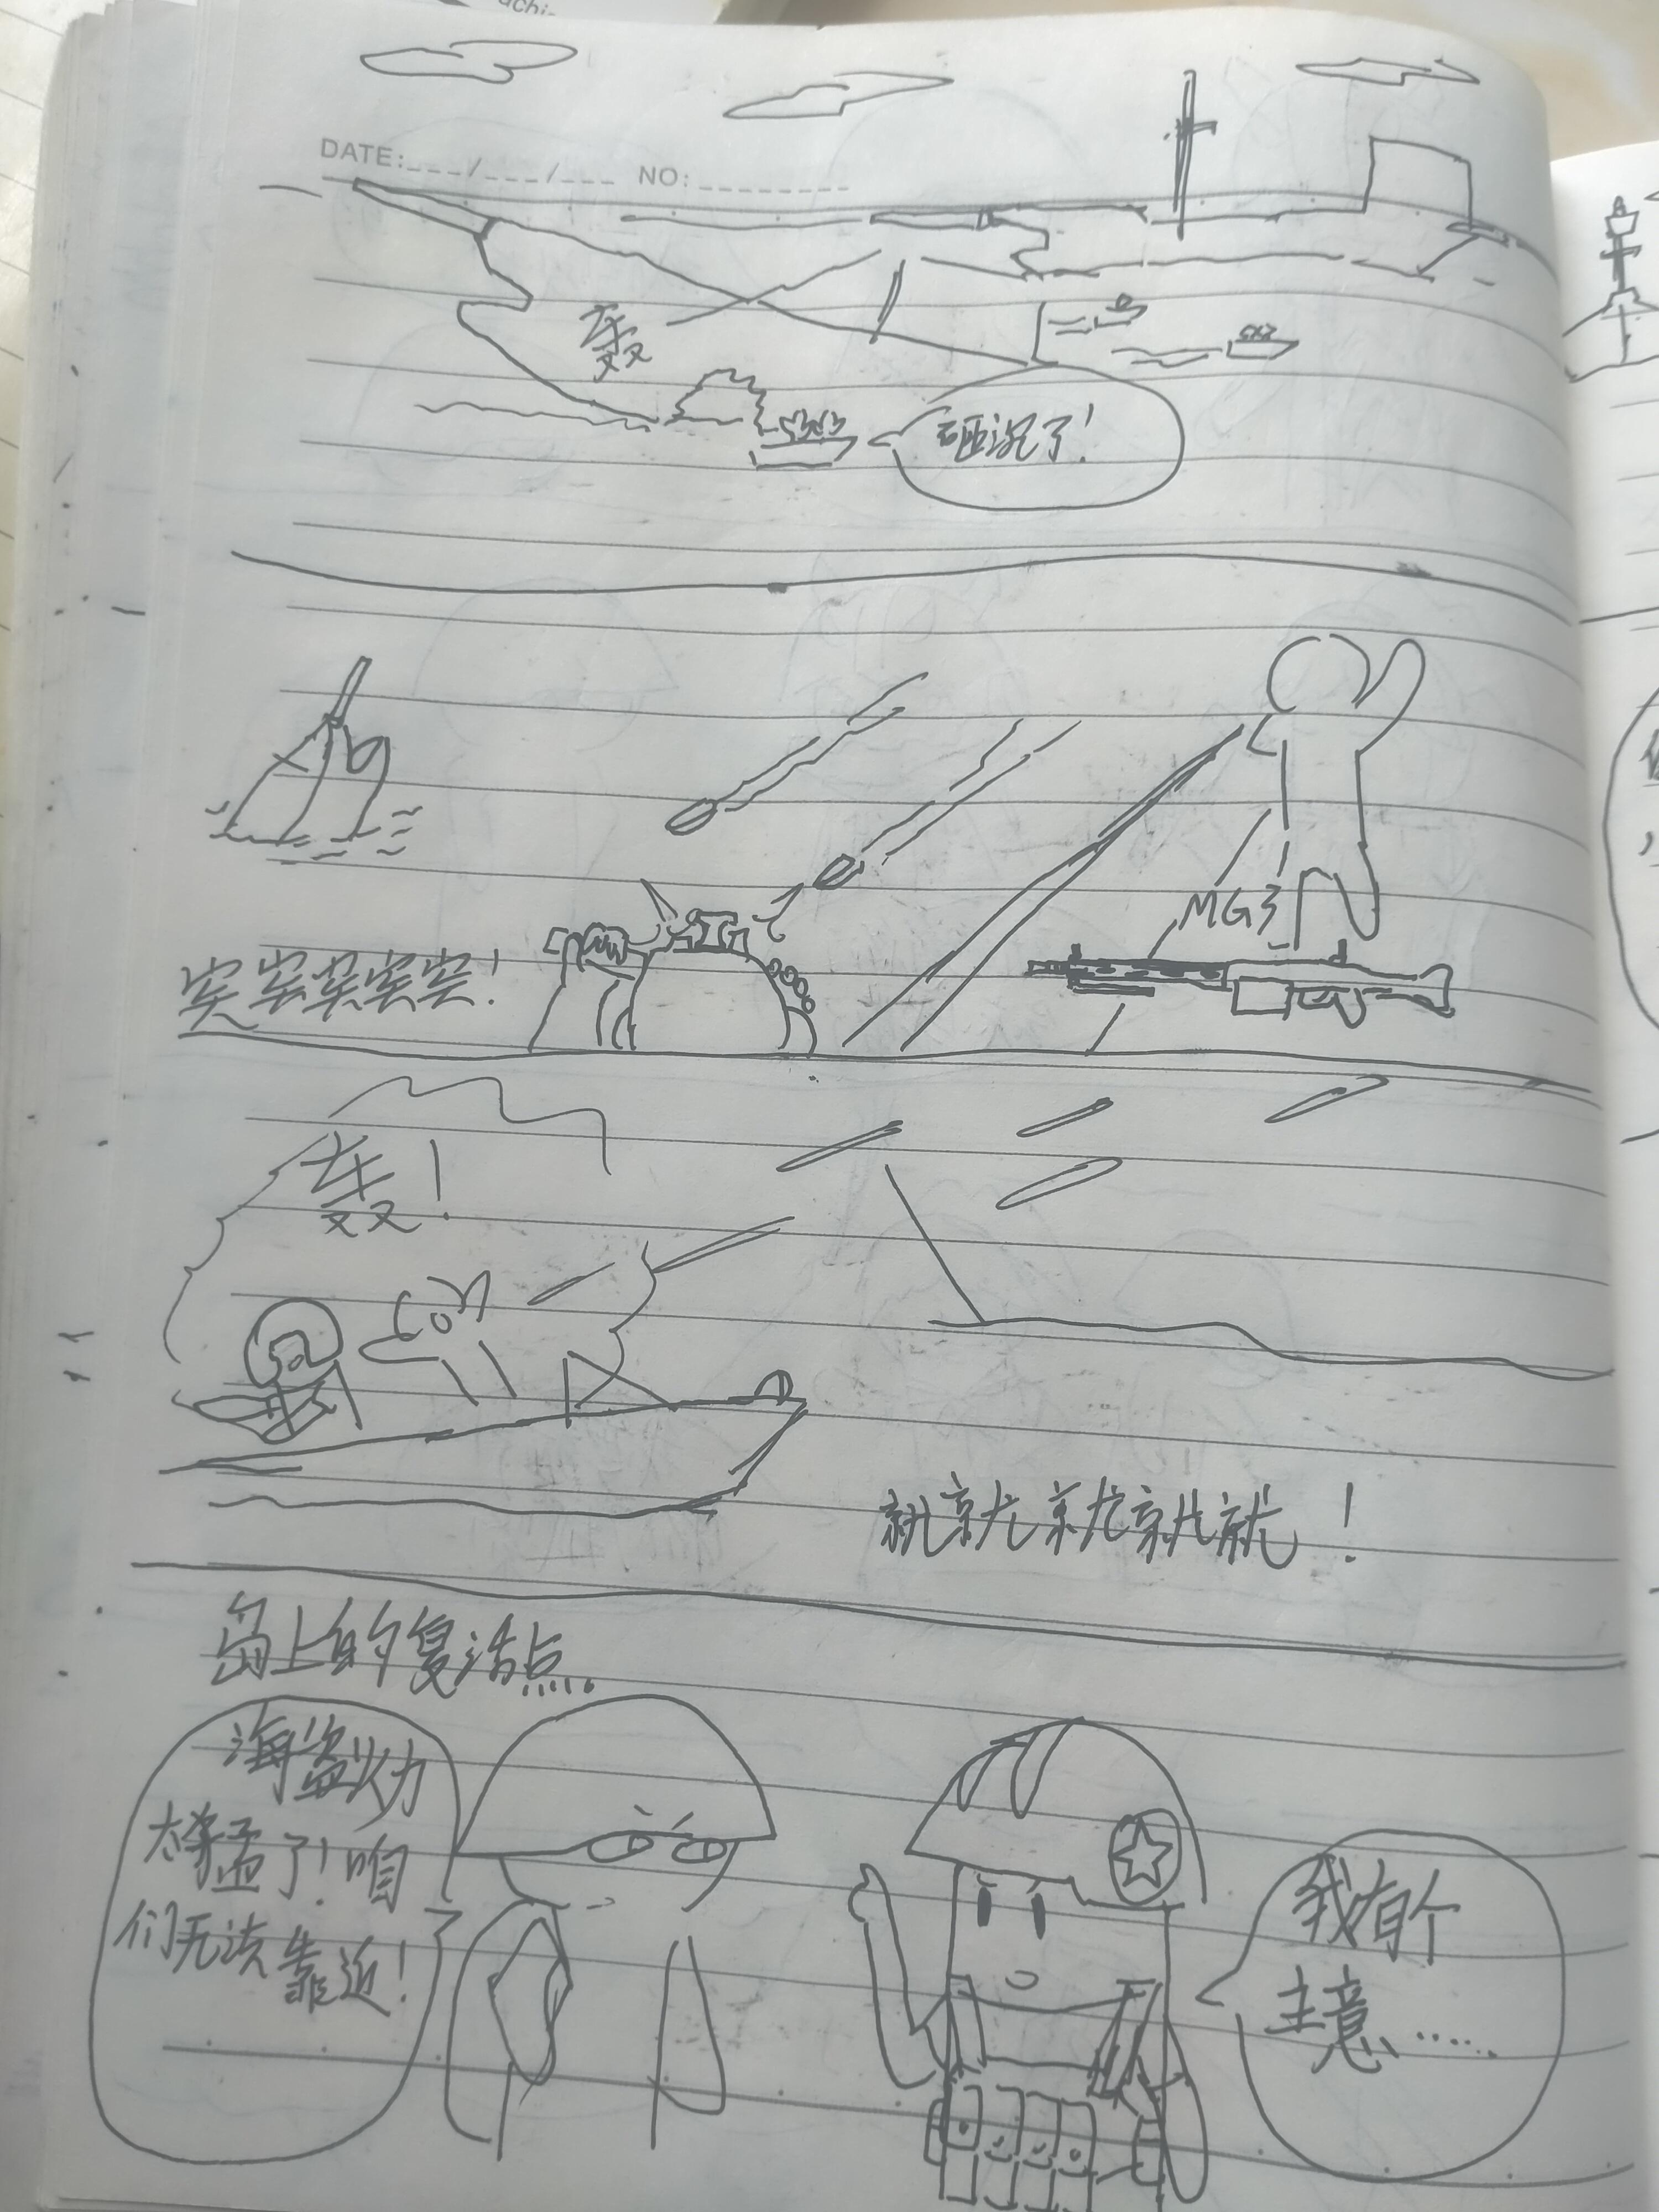 achi
DATE:___/___/___ NO:________
轰
砸沉了!
MG3
突突突突突!
轰!
就就就就就!
岛上的复活点.
海盗火力
太猛了!咱
们无法靠近!
我有个
主意……